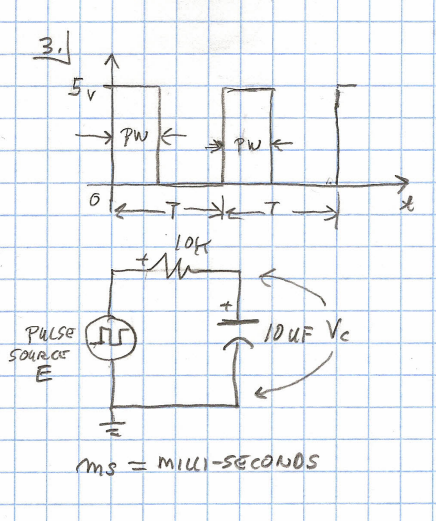 3.
5v
PW
PW
0
T
T
t
10K
+
+
PULSE
SOURCE
E
10UF
Vc
ms = MILLI-SECONDS